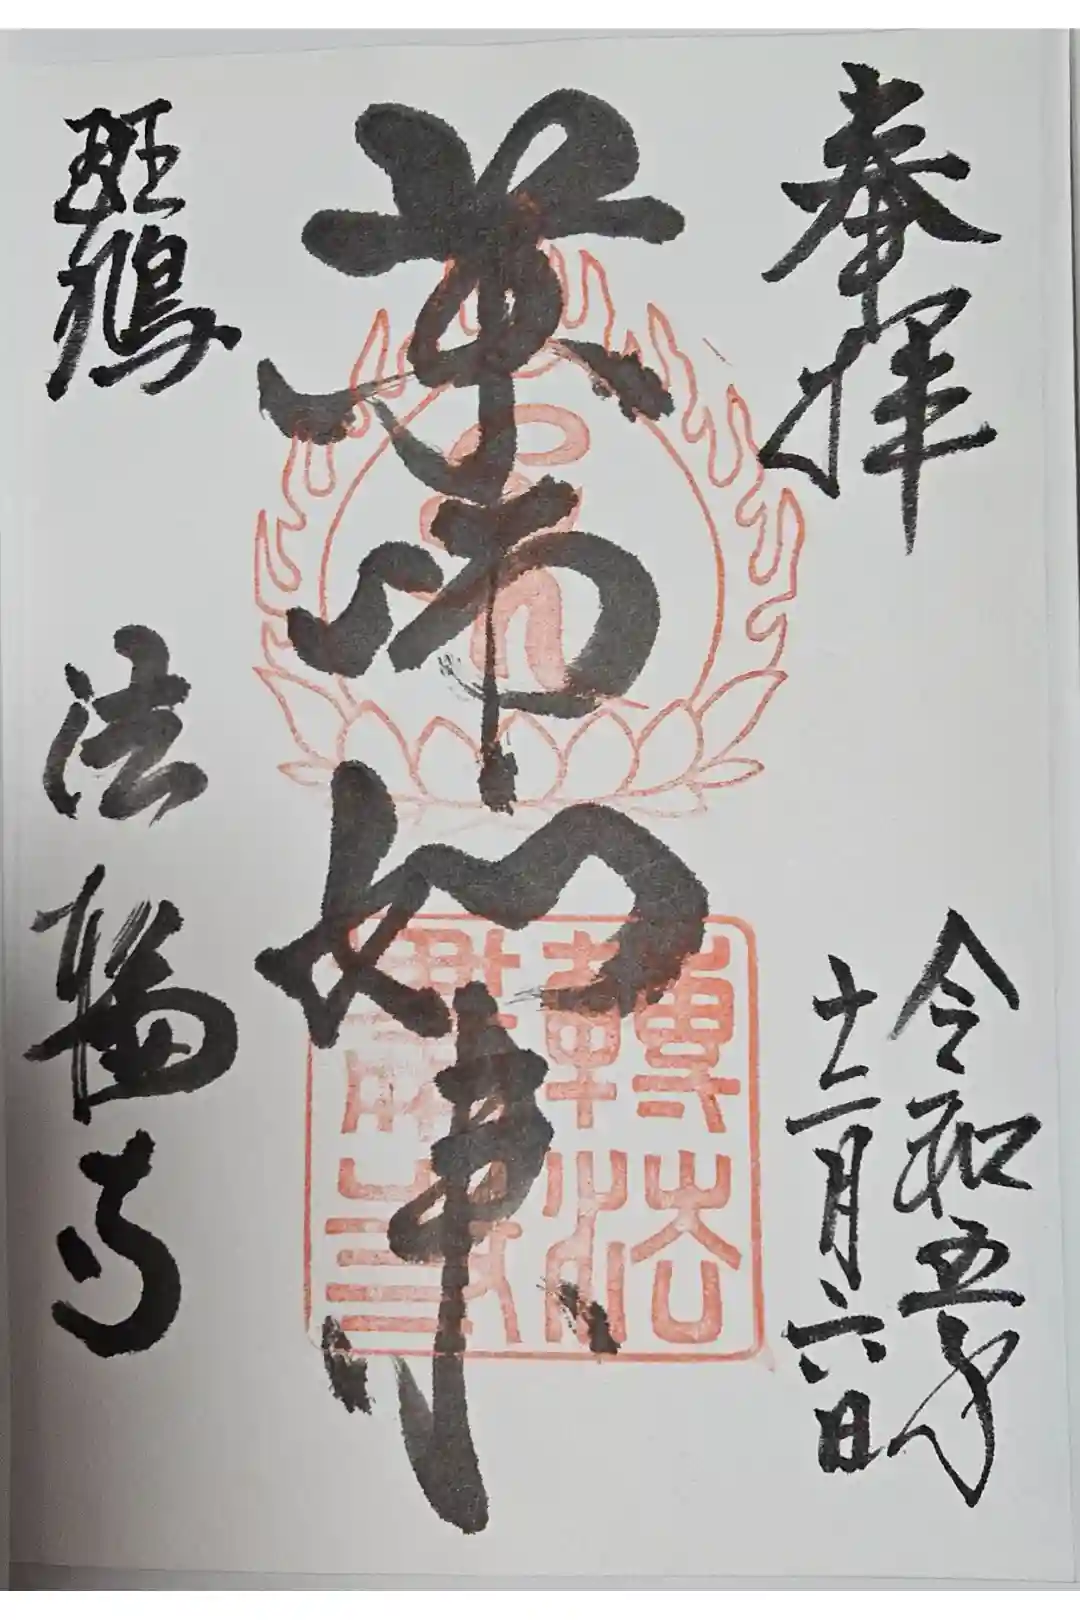 奉拝
令和五年
十二月六日
薬師如来
斑鳩
法輪寺
轉法